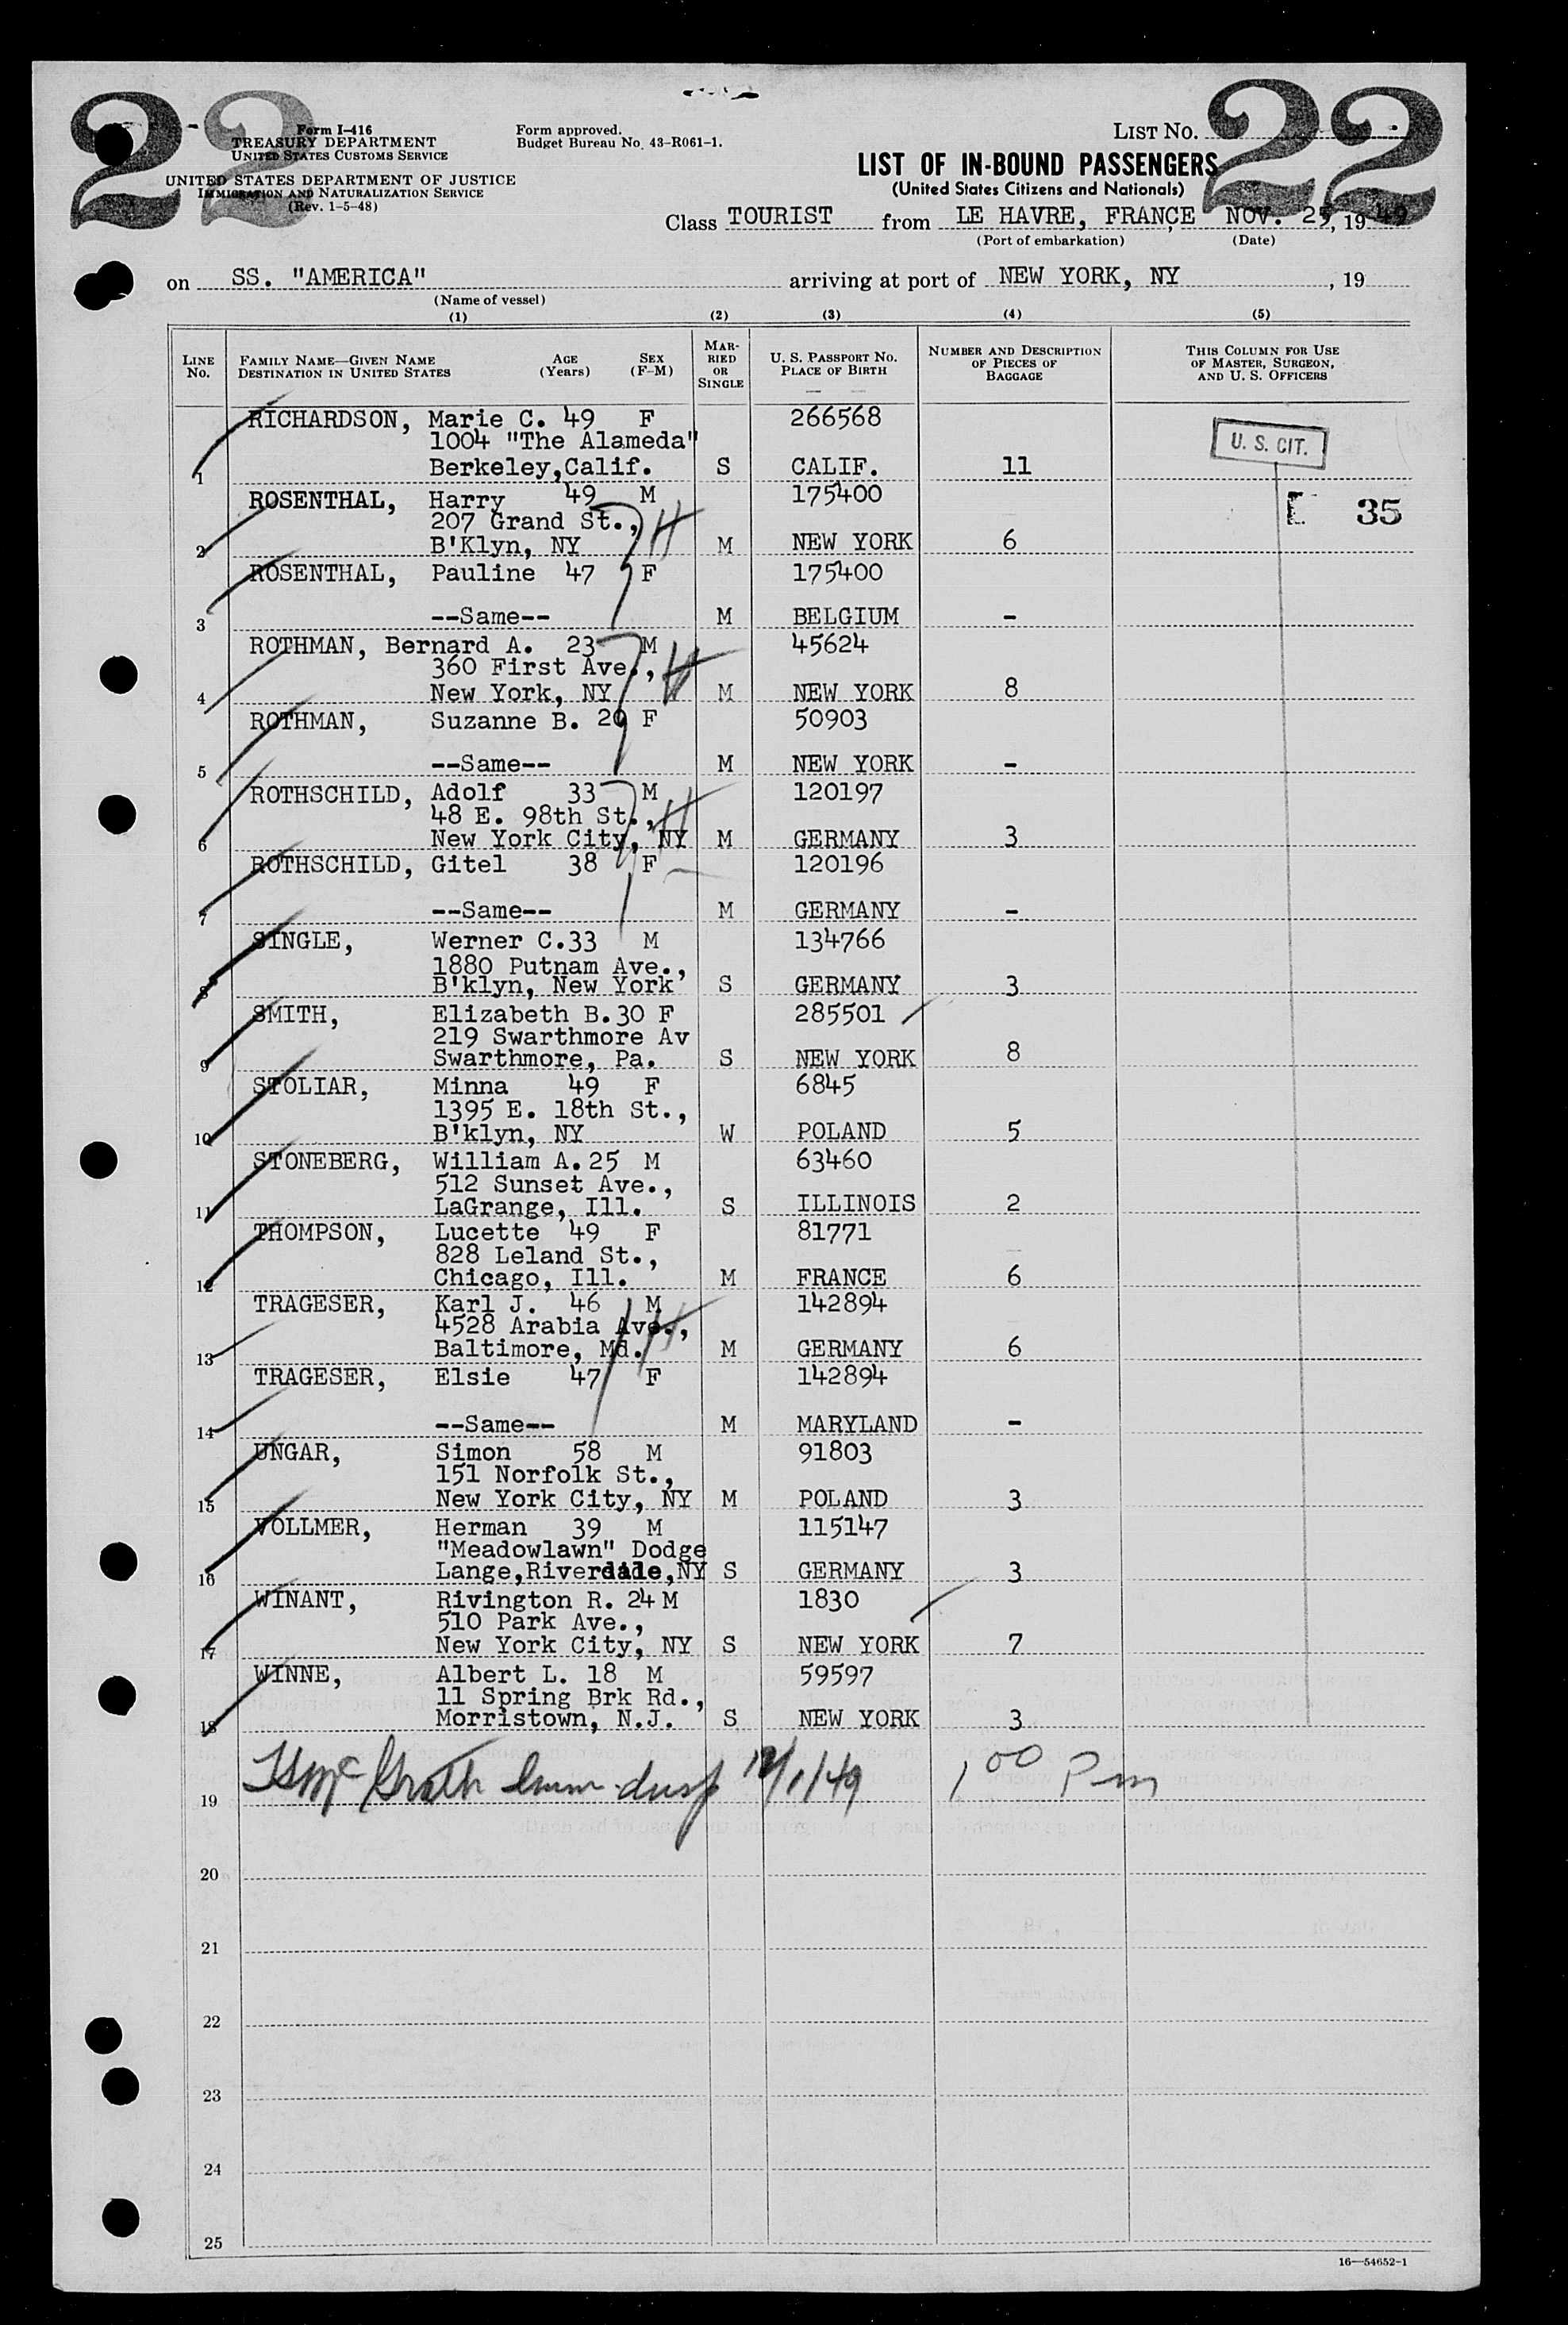 22
22
Form I-416
TREASURY DEPARTMENT
UNITED STATES CUSTOMS SERVICE
UNITED STATES DEPARTMENT OF JUSTICE
IMMIGRATION AND NATURALIZATION SERVICE
(Rev. 1-5-48)
Form approved.
Budget Bureau No. 43-R061-1.
LIST NO.
LIST OF IN-BOUND PASSENGERS
(United States Citizens and Nationals)
Class TOURIST from LE HAVRE, FRANCE NOV. 25, 1949
(Port of embarkation) (Date)
on SS. "AMERICA" arriving at port of NEW YORK, NY, 19
(Name of vessel)
(1) (2) (3) (4) (5)
LINE No. FAMILY NAME—GIVEN NAME DESTINATION IN UNITED STATES AGE (Years) SEX (F-M) MARRIED OR SINGLE U. S. PASSPORT NO. PLACE OF BIRTH NUMBER AND DESCRIPTION OF PIECES OF BAGGAGE THIS COLUMN FOR USE OF MASTER, SURGEON, AND U. S. OFFICERS
RICHARDSON, Marie C. 49 F 266568
1004 "The Alameda"
1 Berkeley,Calif. S CALIF. 11
U. S. CIT.
ROSENTHAL, Harry 49 M 175400
E 35
207 Grand St., H
2 B'Klyn, NY M NEW YORK 6
ROSENTHAL, Pauline 47 F 175400
3 --Same-- M BELGIUM -
ROTHMAN, Bernard A. 23 M 45624
360 First Ave., H
4 New York, NY M NEW YORK 8
ROTHMAN, Suzanne B. 20 F 50903
5 --Same-- M NEW YORK -
ROTHSCHILD, Adolf 33 M 120197
48 E. 98th St., H
6 New York City, NY M GERMANY 3
ROTHSCHILD, Gitel 38 F 120196
7 --Same-- M GERMANY -
SINGLE, Werner C.33 M 134766
1880 Putnam Ave.,
8 B'klyn, New York S GERMANY 3
SMITH, Elizabeth B.30 F 285501
219 Swarthmore Av
9 Swarthmore, Pa. S NEW YORK 8
STOLIAR, Minna 49 F 6845
1395 E. 18th St.,
10 B'klyn, NY W POLAND 5
STONEBERG, William A.25 M 63460
512 Sunset Ave.,
11 LaGrange, Ill. S ILLINOIS 2
THOMPSON, Lucette 49 F 81771
828 Leland St.,
12 Chicago, Ill. M FRANCE 6
TRAGESER, Karl J. 46 M 142894
4528 Arabia Ave., H
13 Baltimore, Md. M GERMANY 6
TRAGESER, Elsie 47 F 142894
14 --Same-- M MARYLAND -
UNGAR, Simon 58 M 91803
151 Norfolk St.,
15 New York City, NY M POLAND 3
VOLLMER, Herman 39 M 115147
"Meadowlawn" Dodge
16 Lange,Riverdale,NY S GERMANY 3
WINANT, Rivington R. 24 M 1830
510 Park Ave.,
17 New York City, NY S NEW YORK 7
WINNE, Albert L. 18 M 59597
11 Spring Brk Rd.,
18 Morristown, N.J. S NEW YORK 3
19 McGrath Imm insp 12/1/49 1 00 Pm
20
21
22
23
24
25
16—54652-1